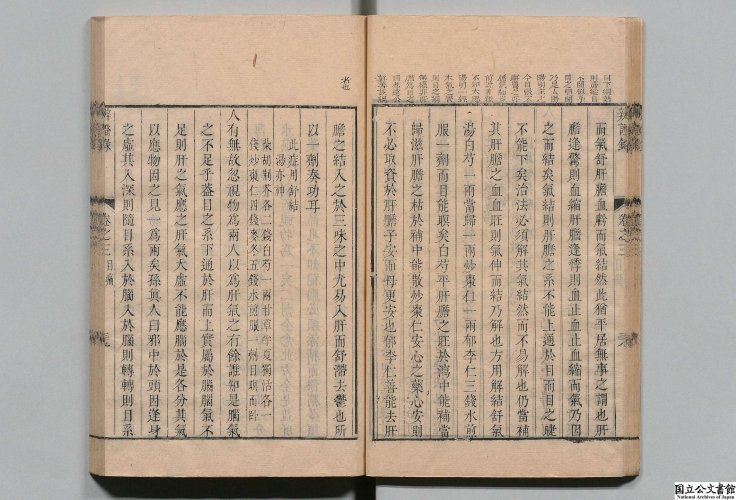 而氣舒肝膽血虧而氣結然此猶平居無事之謂也肝
膽逢驚則血縮肝膽逢愕則血止血止血縮而氣乃因
之而結矣氣結則肝膽之系不能上通於目而目之睫
不能下矣治法必須解其氣結然而不易解也仍當補
其肝膽之血血旺則氣伸而結乃解也方用解結舒氣
湯白芍一兩當歸一兩炒棗仁一兩郁李仁三錢水煎
服一劑而目能瞑矣白芍平肝膽之旺於瀉中能補當
歸滋肝膽之枯於補中能散炒棗仁安心之藥心安則
不必取資於肝膽子安而母更安也郁李仁善能去肝
辨證錄
卷之三目痛
膽之結入之於三味之中尤易入肝而舒滯去鬱也所
以一劑奏功耳
此症用舒結
湯亦神
柴胡荊芥各二錢白芍一兩甘草半夏獨活各一
錢炒棗仁四錢麥冬五錢水煎服一劑目瞑而臥
人有無故忽視物為兩人以為肝氣之有餘誰知是腦氣
之不足乎蓋目之系下通於肝而上實屬於腦腦氣不
足則肝之氣應之肝氣大虛不能應腦於是各分其氣
以應物因之見一為兩矣孫真人曰邪中於頭因逢身
之虛其入深則隨目系入於腦入於腦則轉轉則目系
辨證錄
卷之三目痛
国立公文書館
National Archives of Japan